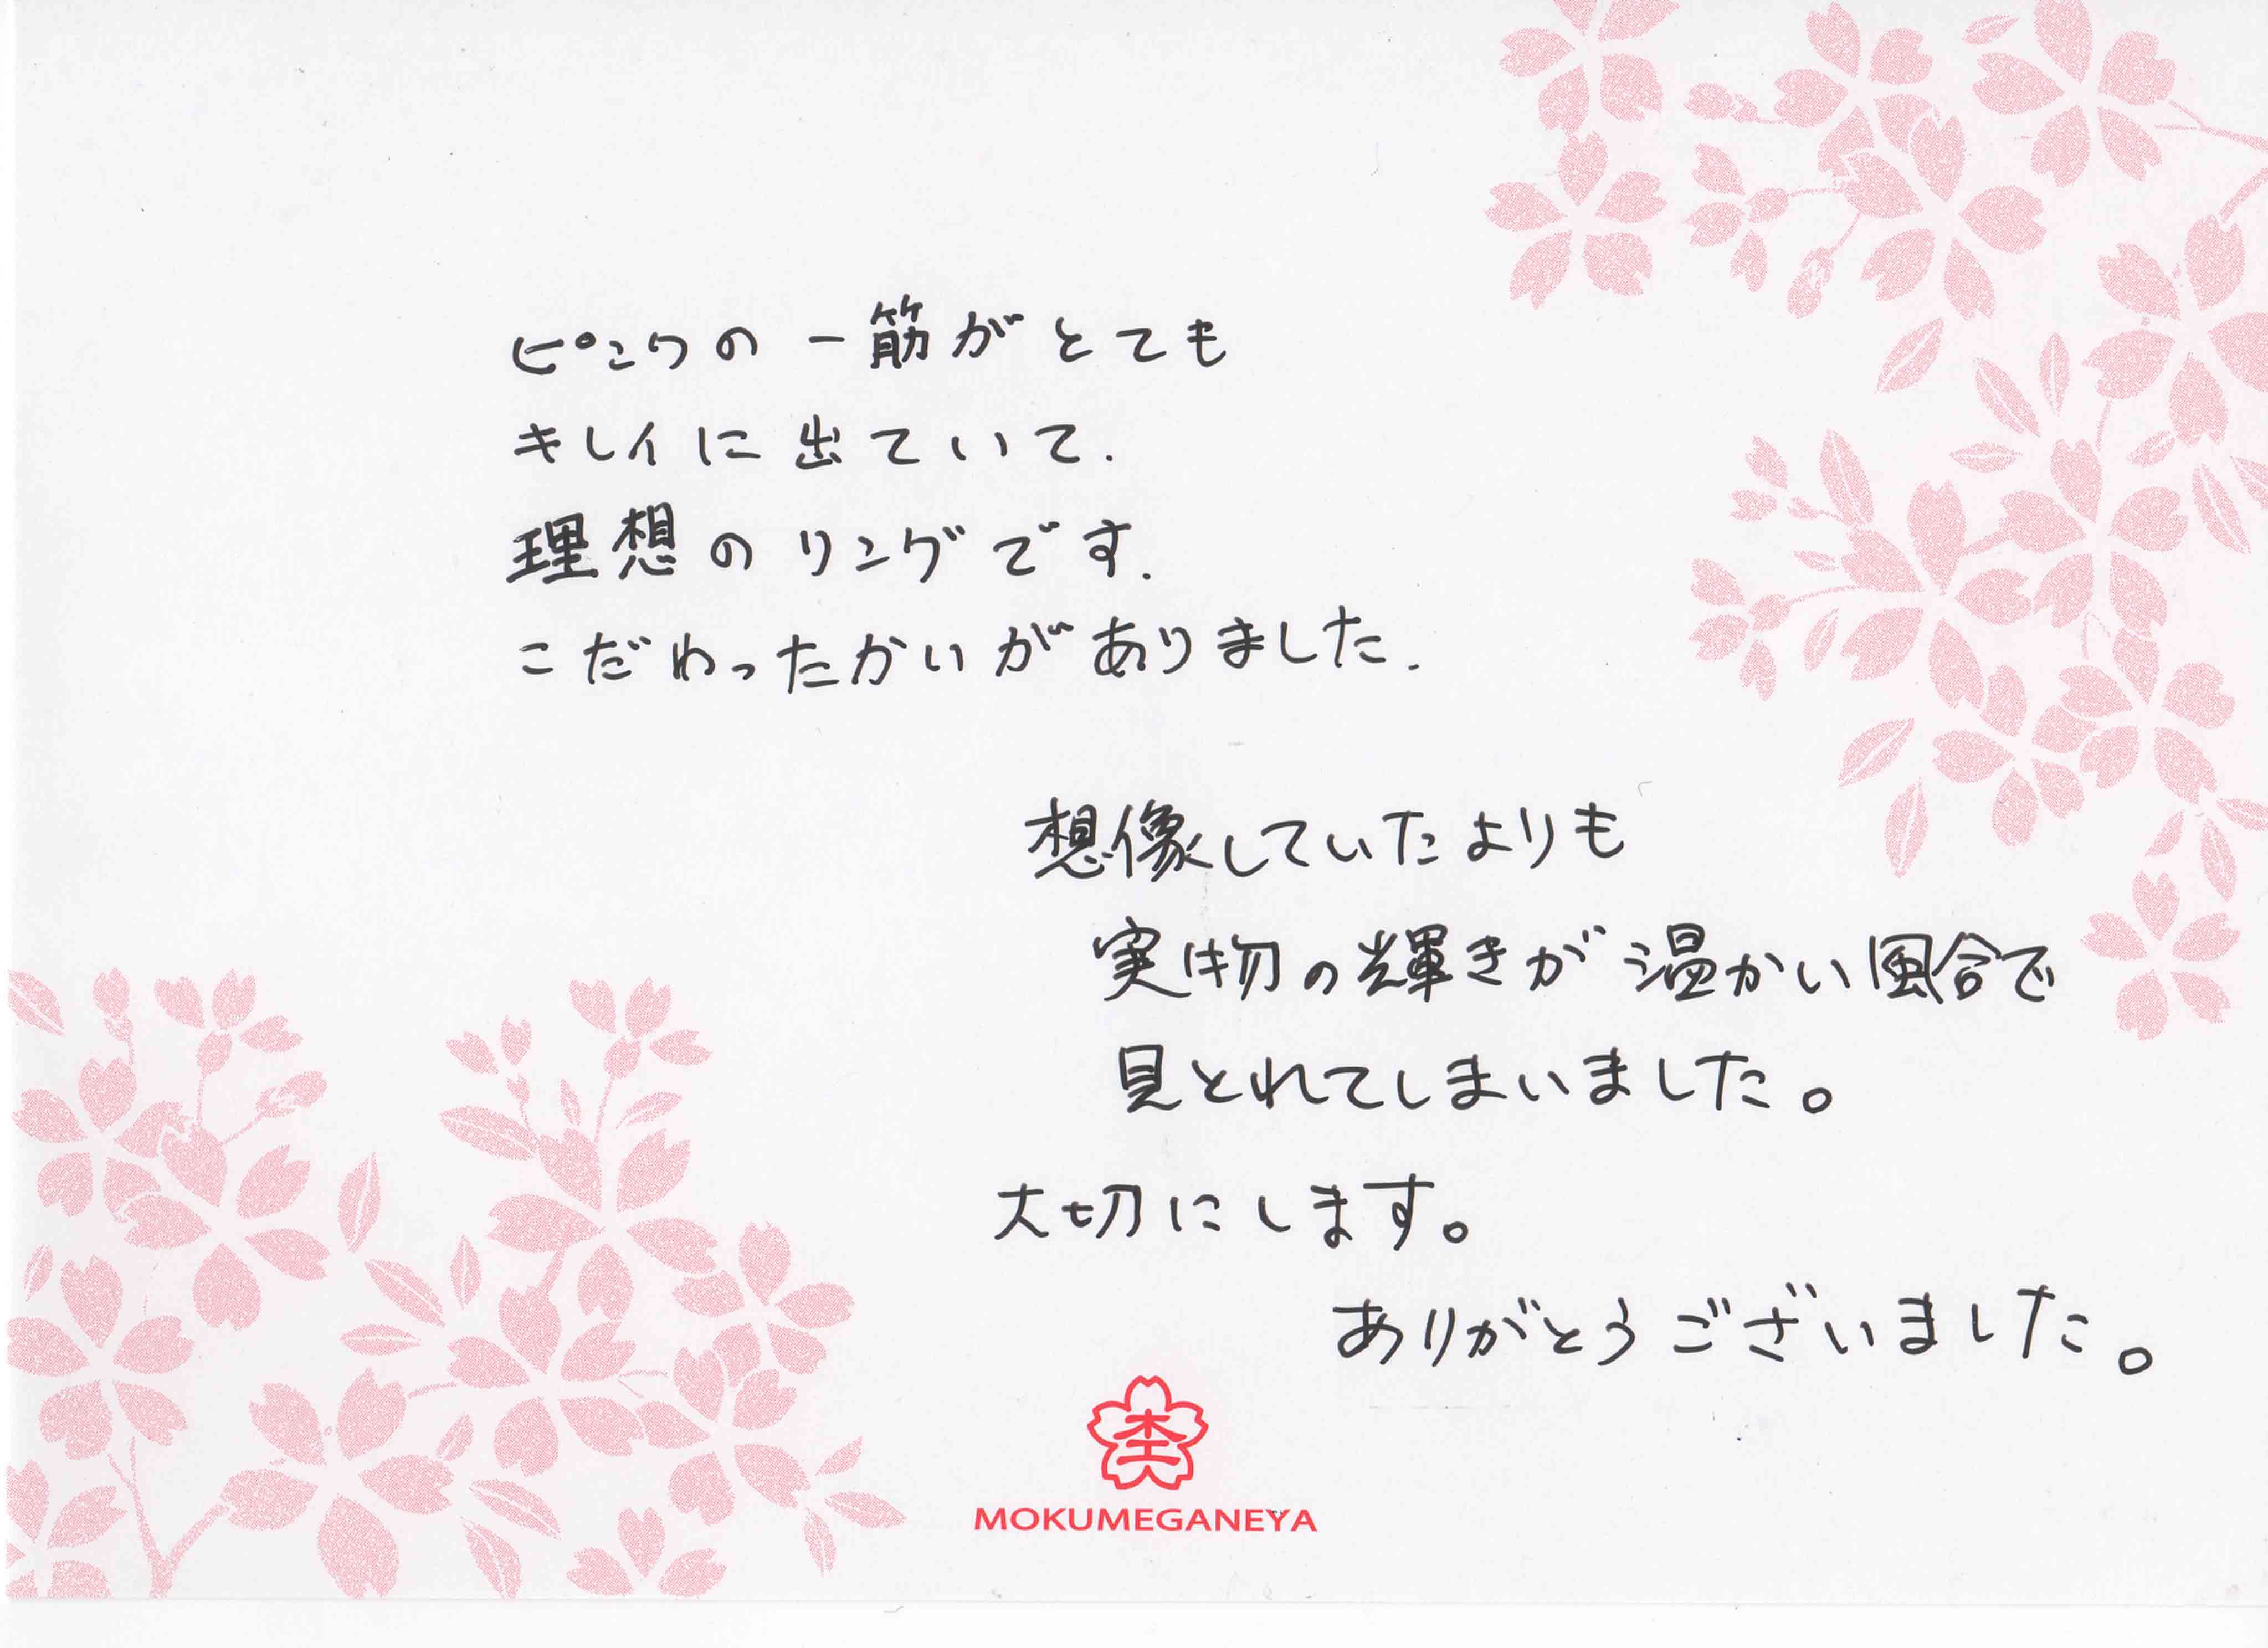 ピンクの一筋がとても
キレイに出ていて.
理想のリングです.
こだわったかいがありました.
想像していたよりも
実物の輝きが温かい風合で
見とれてしまいました。
大切にします。
ありがとうございました。
杢
MOKUMEGANEYA